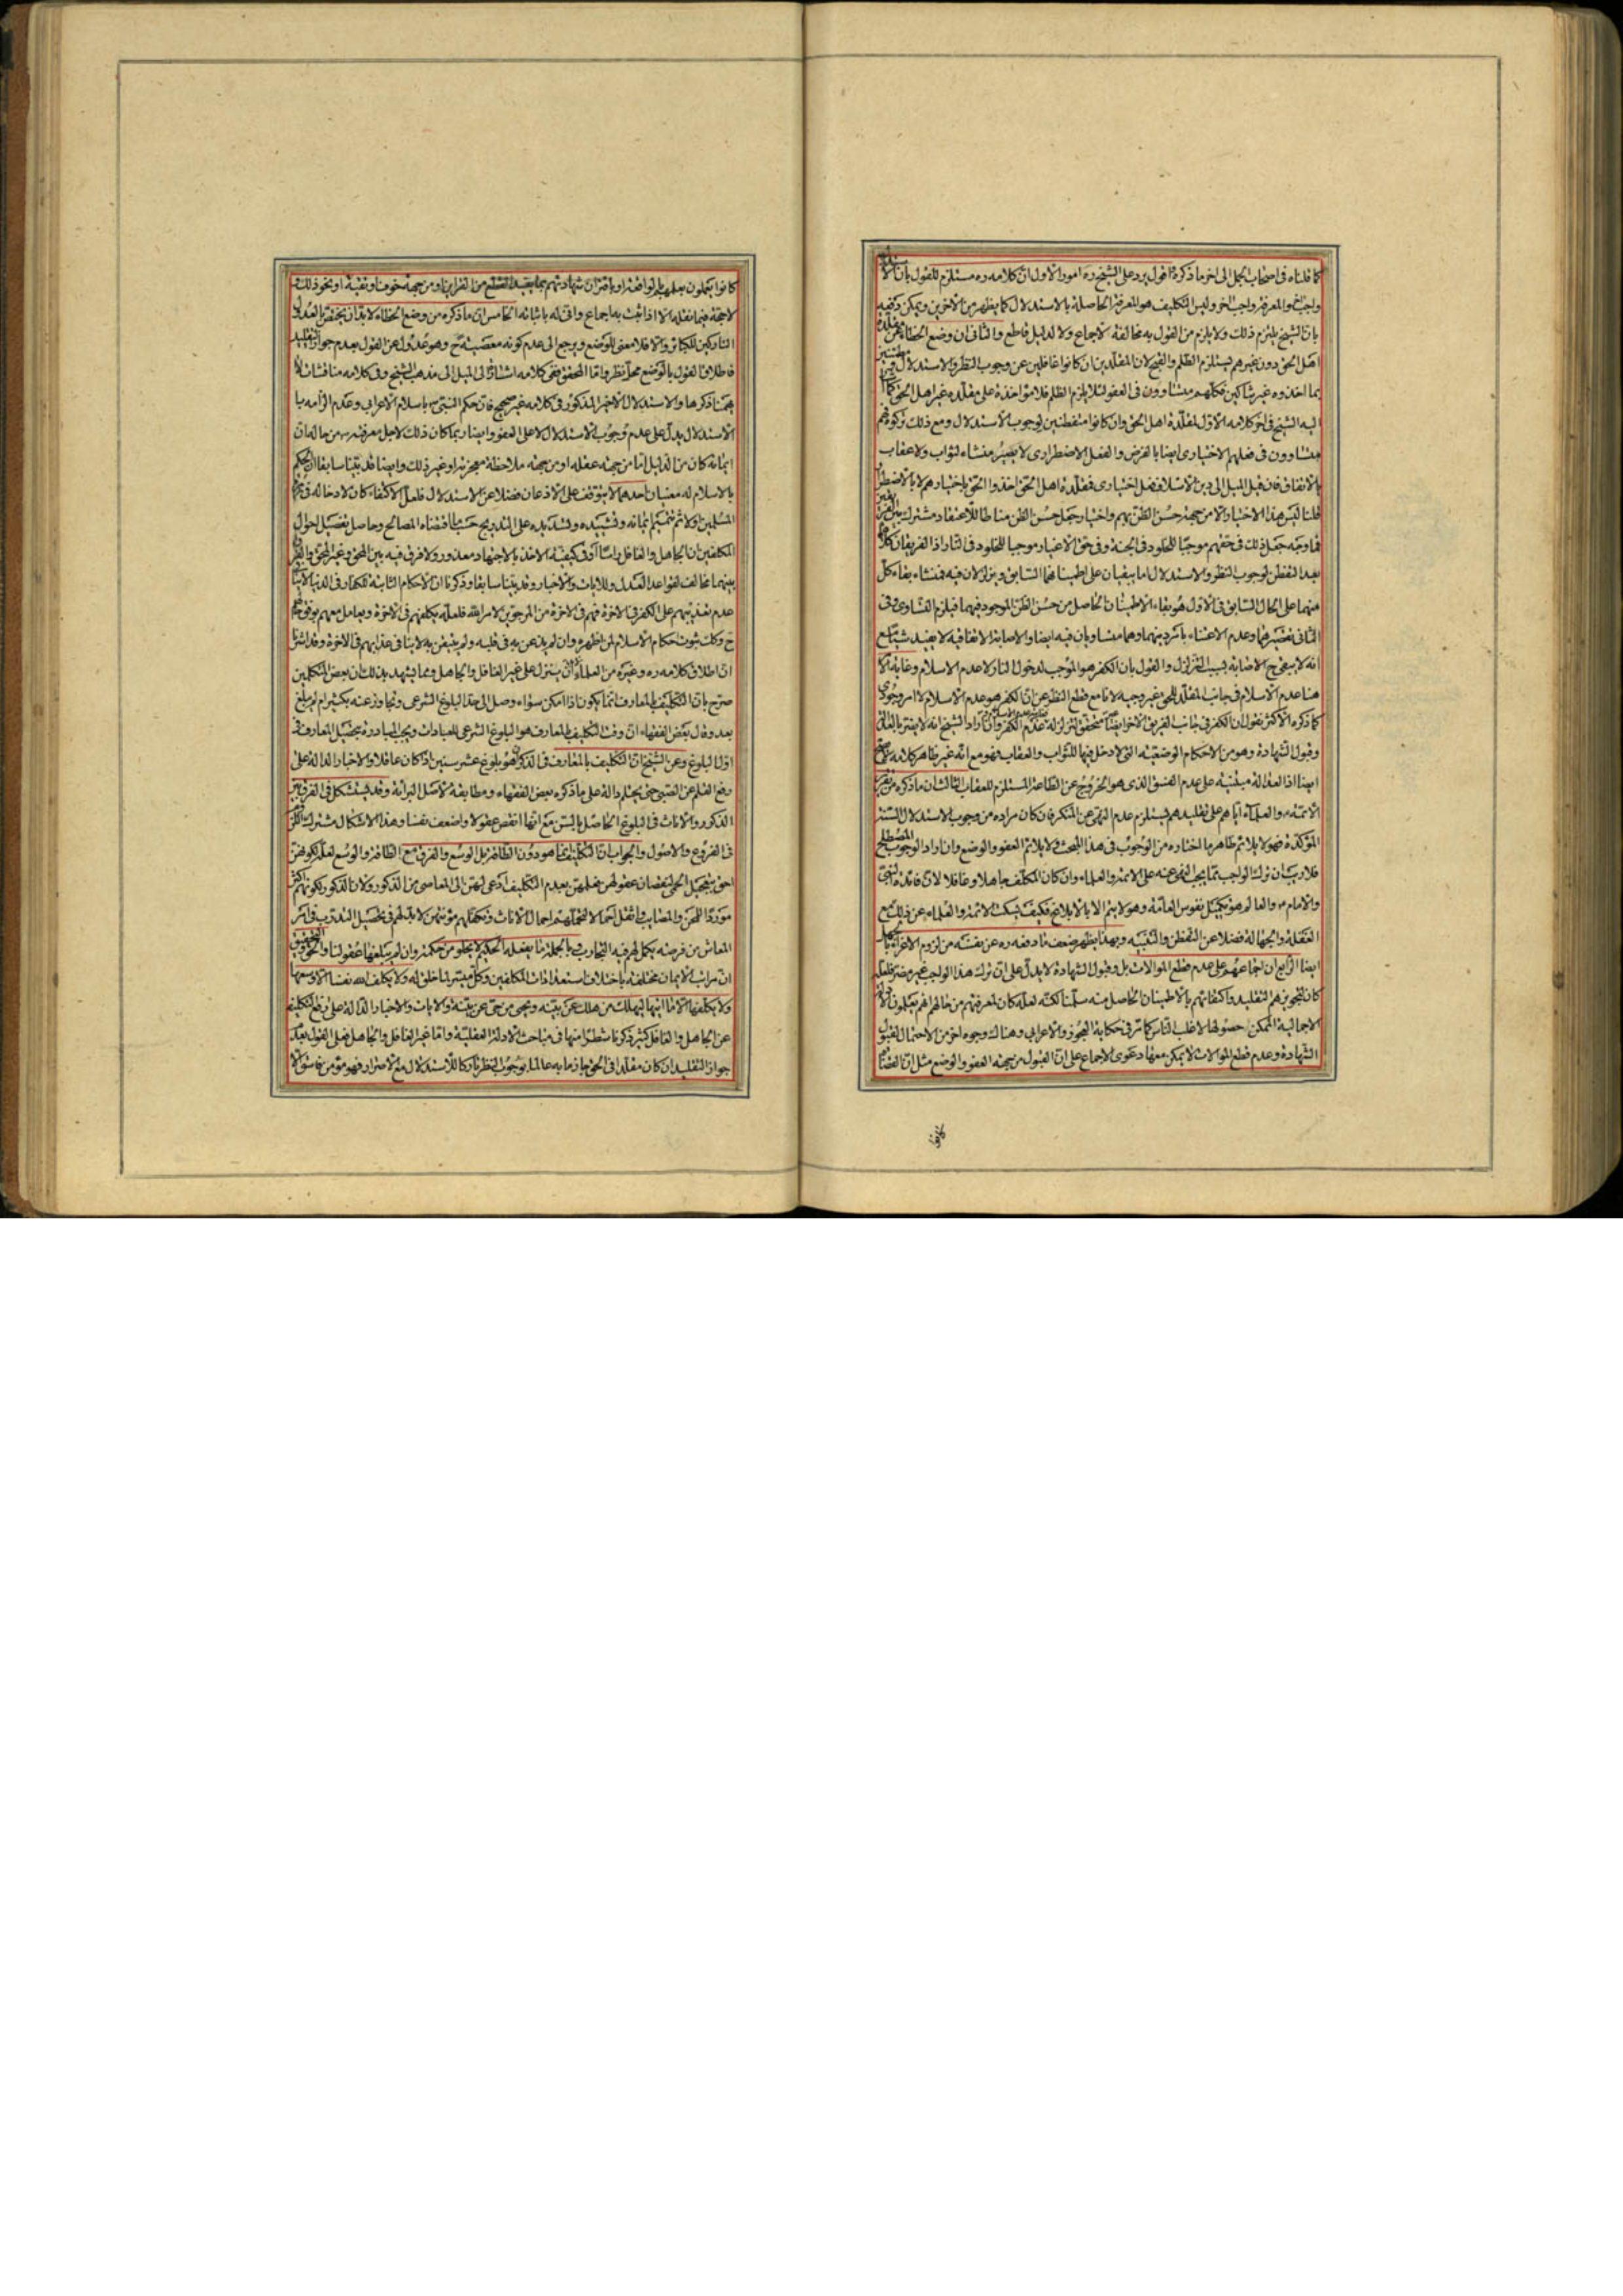 كما قلناه في اصحاب الجمل الى اخر ما ذكره اقول يرد على الشيخ ره امور الاول ان كلامه ره مستلزم للقول بان
واجب والمعرفة واجب اخر وليس التكليف هو المعرفة الحاصلة بالاستدلال كما يظهر من الاخرين ويمكن دفعه
بان الشيخ ملتزم ذلك ولا يلزم من القول به مخالفة لاجماع ولا لدليل قاطع والثاني ان وضع الخطاء عن
اهل الحق دون غيرهم يستلزم الظلم والقبح لان المقلدين ان كانوا غافلين عن وجوب النظر والاستدلال
بما اخذوه غير شاكين فكلهم متساوون في العفو لئلا يلزم الظلم فلا مؤاخذة على مقلدة غير اهل الحق كما
اليه الشيخ في اخر كلامه الاول لمقلدة اهل الحق وان كانوا متفطنين لوجوب الاستدلال ومع ذلك تركوه فهم
متساوون في فعلهم الاختياري ايضا بالفرض والفعل الاضطراري لا يصير منشاء لثواب ولا عقاب
بالاتفاق فان قيل الميل الى دين الاسلام فعل اختياري فمقلدة اهل الحق اخذوا الحق باختيارهم لا بالاضطرار
قلنا ليس هذا الاختيار الا من جهة حسن الظن بهم واختيار وجعل حسن الظن مناطا للاعتقاد مشترك بين
فما وجه جعل ذلك في حقهم موجبا للخلود في الجنة وفي حق الاغيار موجبا للخلود في النار اذ الفريقان
بعد التفطن لوجوب النظر والاستدلال اما يبقيان على اطمينانهما السابق ويتزلزلان فيه فمنشاء بقاء كل
منهما على الحال السابق في الاول هو بقاء الاطمينان الحاصل من حسن الظن الموجود فيهما فيلزم التساوي وفي
الثاني تقصيرهما وعدم الاعتناء بامر دينهما وهما متساويان فيه ايضا والاصابة الاتفاقية لا يفيد شيئا مع
انه لا يبقى ح الاصابة بسبب التزلزل والقول بان الكفر هو الموجب لدخول النار لا عدم الاسلام وغايته
هنا عدم الاسلام في جانب المقلد للحق غير وجيه لانا مع قطع النظر عن ان الكفر هو عدم الاسلام لا امر وجودي
كما ذكره الاكثر نقول ان الكفر في جانب الفريق الاخر ايضا غير متحقق لتزلزله وان اراد الشيخ انه لا يضر بالعدالة
وقبول الشهادة وهو من الاحكام الوضعية التي لا دخل فيها للثواب والعقاب فهو مع انه غير ظاهر كلامه
ايضا اذ العدالة مبتنية على عدم الفسق الذي هو الخروج عن الطاعة المستلزم للعقاب الثالث ان ما ذكره من تقرير
الائمة والعلماء اياهم على تقليدهم يستلزم عدم النهي عن المنكر فان كان مراده من وجوب الاستدلال السنة
المؤكدة فهو لا يلائم ظاهر ما اختاره من الوجوب في هذا المبحث ولا يلائم العفو والوضع وان اراد الوجوب المصطلح
فلا ريب ان ترك الواجب مما يجب النهي عنه على الائمة والعلماء وان كان المكلف جاهلا وغافلا لان فائدة النبي
والامام والعالم هو تكميل نفوس العامة وهو لا يتم الا بالابلاغ فكيف يسكت الائمة والعلماء عن ذلك مع
الغفلة والجهالة فضلا عن التفطن والتنبيه وبهذا يظهر ضعف ما دفعه ره عن نفسه من لزوم الاغراء
ايضا الرابع ان اجماعهم على عدم قطع الموالات بل وقبول الشهادة لا يدل على ان ترك هذا الواجب غير مضر فلعله
كان لتجويزهم التقليد واكتفائهم بالاطمينان الحاصل منه سلمنا لكنه لعله كان لمعرفتهم من حالهم انهم يعلمون
الاجمالية الممكن حصولها لاغلب الناس كما مر في حكاية العجوز والاعرابي وهناك وجوه اخر من الاحتمال لقبول
الشهادة وعدم قطع الموالات لا يمكن معها دعوى الاجماع على ان القبول من جهة العفو والوضع مثل ان القضاة
كانوا يعملون بعلمهم او باقتران شهادتهم بما يفيد القطع من القراين او من جهة خوف او تقية او نحو ذلك و
لا حجة فيما نقله الا اذا ثبت به اجماع وانى له باثباته الخامس ان ما ذكره من وضع الخطاء لا بد ان يختص
التاركين للكبائر والا فلا معنى للوضع ويرجع الى عدم كونه معصية ح وهو عدول عن القول بعدم جواز التقليد
فاطلاق القول بالوضع محل نظر واما المحقق ففي كلامه اشارة الى الميل الى مذهب الشيخ وفي كلامه مناقشات
ذكرها والاستدلال الاخير المذكور في كلامه غير صحيح فان حكم النبي ص باسلام الاعرابي وعدم الزامه با
لاستدلال يدل على عدم وجوب الاستدلال لا على العفو وايضا ربما كان ذلك لاجل معرفته ص من حاله ان
ايمانه كان من الدليل اما من جهة عقله او من جهة ملاحظة معجزة او غير ذلك وايضا قد بينا سابقا ان الحكم
بالاسلام له معنيان احدهما لا يتوقف على الاذعان فضلا عن الاستدلال فلعل الاكتفاء كان لادخاله في
المسلمين اولا ثم تتميم ايمانه وتشييده وتسديده على التدريج حسب اقتضاء المصالح وحاصل تفصيل احوال
المكلفين ان الجاهل والغافل راسا او في كيفية الاخذ بالاجتهاد معذور ولا فرق فيه بين المحق وغير المحق والفرق
بينهما مخالف لقواعد العدل وللايات والاخبار وقد بينا سابقا وذكرنا ان الاحكام الثابتة للكفار في الدنيا لا ينافي
عدم تعذيبهم على الكفر في الاخرة فهم في الاخرة من المرجون لامر الله فلعله يكلفهم في الاخرة ويعامل معهم
ح وكذلك ثبوت احكام الاسلام لمن اظهره وان لم يذعن به في قلبه ولم يتيقن به لا ينافي عذابهم في الاخرة وقد اشرنا
ان اطلاق كلامه ره وغيره من العلماء لا بد ان يتنزل على غير الغافل والجاهل ومما يشهد بذلك ان بعض المتكلمين
صرح بان التكليف بالمعارف انما يكون اذا امكن سواء وصل الى حد البلوغ الشرعي وتجاوز عنه بكثير ام لم يبلغ
بعد وقال بعض الفقهاء ان وقت التكليف بالمعارف هو البلوغ الشرعي للعبادات ويجب المبادرة بتحصيل المعارف في
اول البلوغ وعن الشيخ ان التكليف بالمعارف في الذكور هو بلوغ عشر سنين اذا كان عاقلا والاخبار الدالة على
رفع القلم عن الصبي حتى يحتلم دالة على ما ذكره بعض الفقهاء ومطابقة لاصل البرائة وقد يستشكل في الفرق بين
الذكور والاناث في البلوغ الحاصل بالسن مع انها انقص عقولا واضعف نفسا وهذا الاشكال مشترك
في الفروع والاصول والجواب ان التكليف انما هو دون الطاقة بل الوسع والفرق مع الطاقة والوسع لعله لكونهن
احق بتعجيل الحكم لنقصان عقولهن فجعلهن بعدم التكليف ادعى لهن الى المعاصي من الذكور ولان الذكور لكونهم اكثر
موردا للمحن والمصائب واثقل احمالا لتحملهم احمال الاناث وتكفلهم مؤنتهن لا بد لهم في تحصيل التدرب في امر
المعاش من فرصة يكمل لهم فيه التجارب وبالجملة ما يفعله الحكيم لا يخلو من حكمة وان لم يبلغها عقولنا والحق
ان مراتب الايمان مختلفة باختلاف استعدادات المكلفين وكل ميسر لما خلق له ولا يكلف الله نفسا الا وسعها
ولا يكلفها الا ما اتيها ليهلك من هلك عن بينة ويحيى من حي عن بينة والايات والاخبار الدالة على رفع التكليف
عن الجاهل والغافل كثير ذكرنا شطرا منها في مباحث الادلة العقلية واما غير الغافل والجاهل فعلى القول بعدم
جواز التقليد ان كان مقلدا في الحق جازما به عالما بوجوب النظر تاركا للاستدلال مع الاصرار فهو مؤمن فاسق